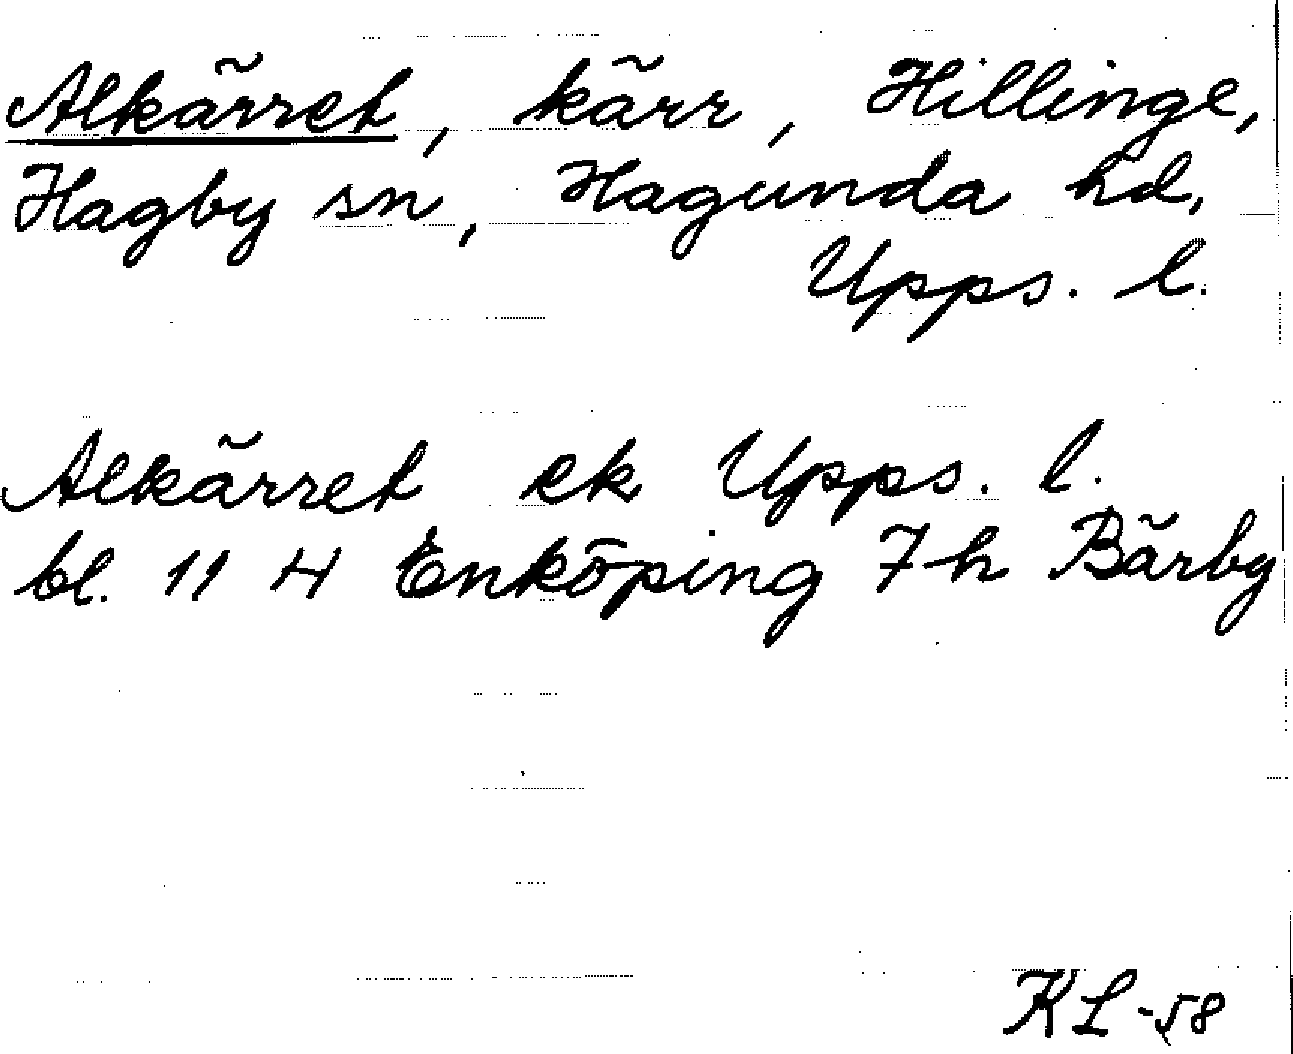 Alkärret, kärr, Hillinge,
Hagby sn, Hagunda hd,
Upps. l.
Alkärret ek Upps. l.
bl. 11 H Enköping 7 h Bärby
KL-58